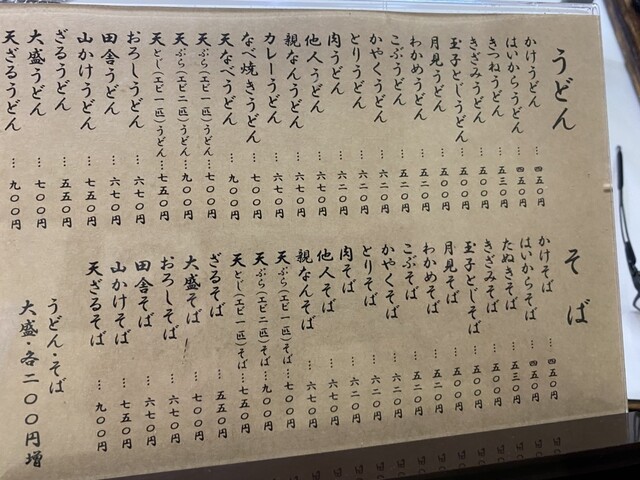 うどん
かけうどん … 四五〇円
はいからうどん … 四五〇円
きつねうどん … 五三〇円
きざみうどん … 五〇〇円
玉子とじうどん … 五〇〇円
月見うどん … 五〇〇円
わかめうどん … 五二〇円
こぶうどん … 五二〇円
かやくうどん … 六二〇円
とりうどん … 六二〇円
肉うどん … 六二〇円
他人うどん … 六七〇円
親なんうどん … 六七〇円
カレーうどん … 六七〇円
なべ焼きうどん … 七〇〇円
天なべうどん … 九〇〇円
天ぷら(エビ一匹)うどん … 七〇〇円
天ぷら(エビ二匹)うどん … 九〇〇円
天とじ(エビ一匹)うどん … 七五〇円
おろしうどん … 六七〇円
田舎うどん … 六七〇円
山かけうどん … 七五〇円
ざるうどん … 五五〇円
大盛うどん … 七〇〇円
天ざるうどん … 九〇〇円
そば
かけそば … 四五〇円
はいからそば … 四五〇円
たぬきそば … 五三〇円
きざみそば … 五〇〇円
玉子とじそば … 五〇〇円
月見そば … 五〇〇円
わかめそば … 五二〇円
こぶそば … 五二〇円
かやくそば … 六二〇円
とりそば … 六二〇円
肉そば … 六二〇円
他人そば … 六七〇円
親なんそば … 六七〇円
天ぷら(エビ一匹)そば … 七〇〇円
天ぷら(エビ二匹)そば … 九〇〇円
天とじ(エビ一匹)そば … 七五〇円
ざるそば … 五五〇円
大盛そば … 七〇〇円
おろしそば … 六七〇円
田舎そば … 六七〇円
山かけそば … 七五〇円
天ざるそば … 九〇〇円
うどん・そば
大盛・各二〇〇円増